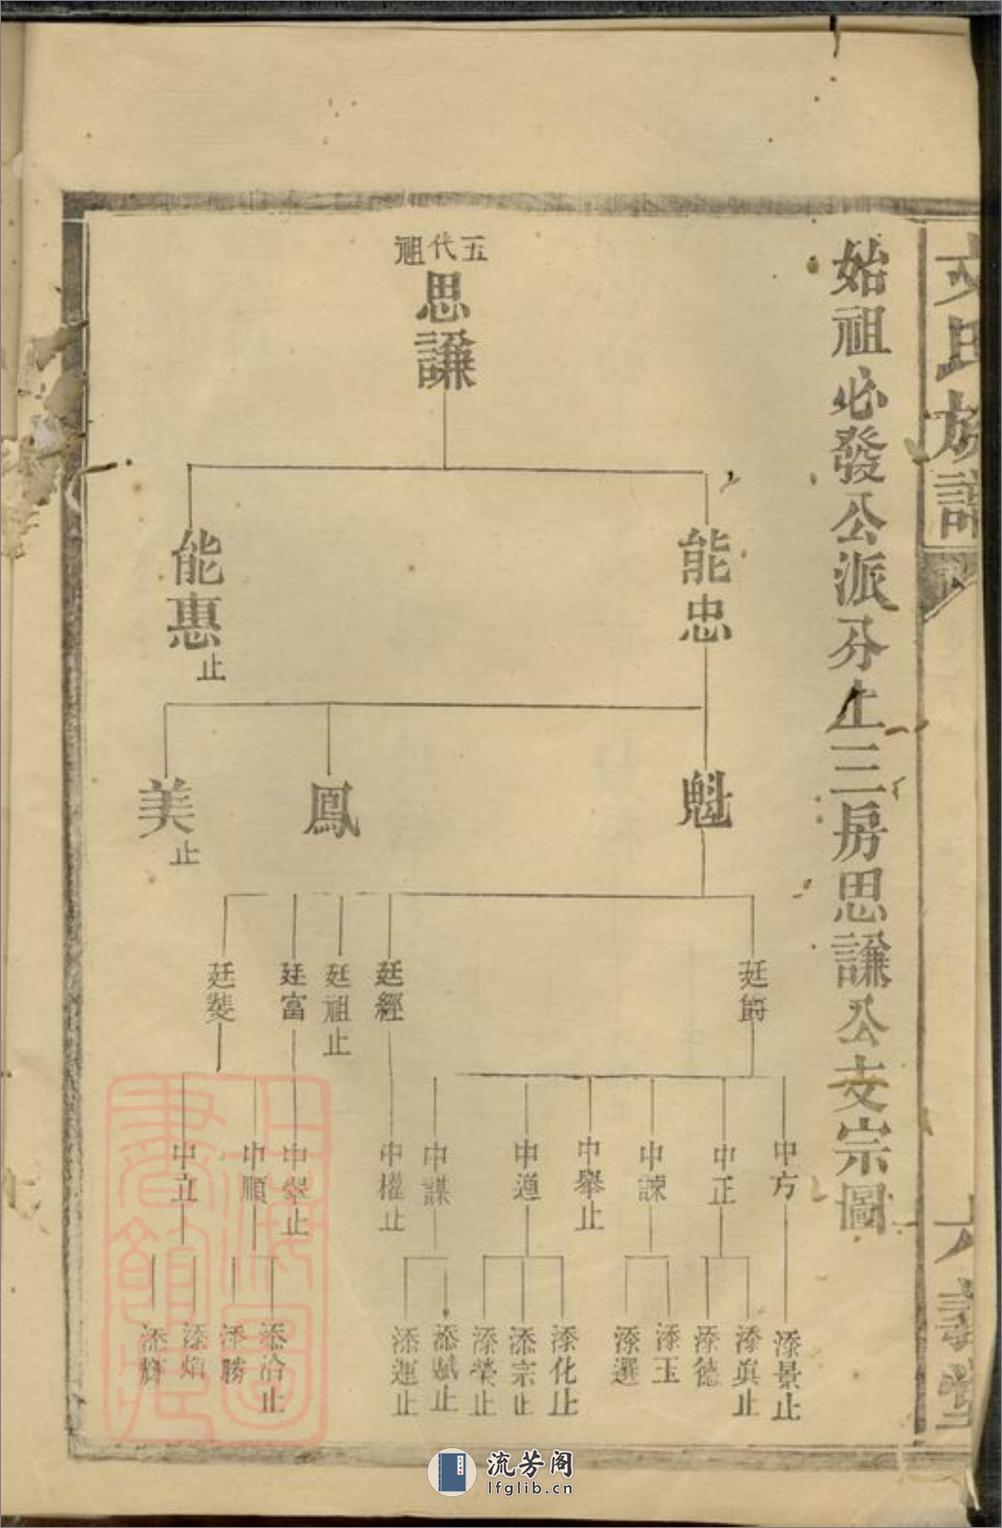 文氏族譜
六義堂
始祖必發公派分上三房思謙公支宗圖
五代祖
思謙
能忠
能惠止
魁
鳳
美止
廷爵
廷經
廷祖止
廷富
廷獎
中方
中正
中諫
中舉止
中道
中謀
中權止
中舉止
中順
中立
添景止
添眞止
添德
添玉
添選
添化止
添宗止
添榮止
添賦止
添運止
添洽止
添勝
添煩
添輝
上海圖書館藏
流芳阁
lfglib.cn